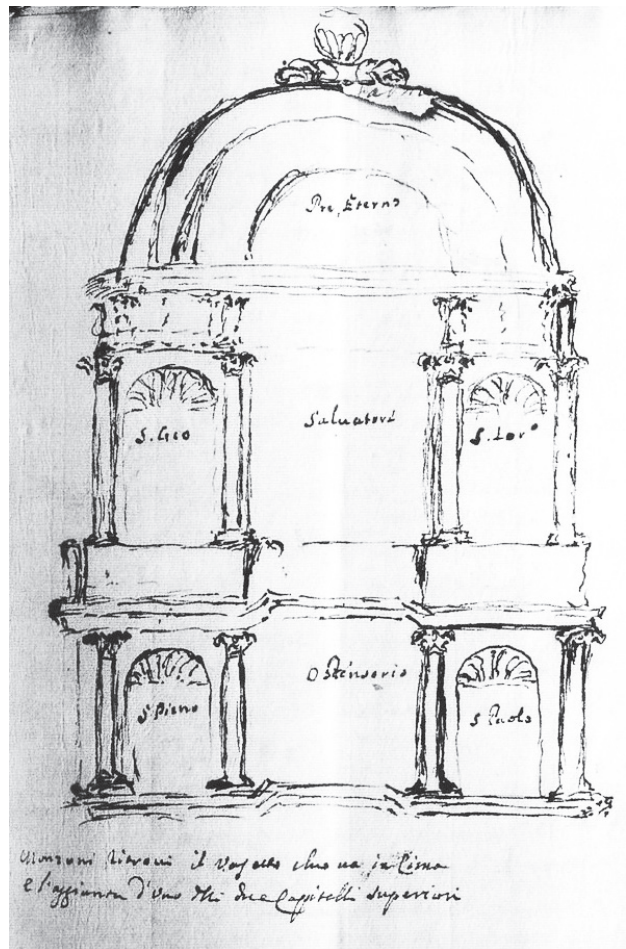 Pre, Eterno
Salvatore
S. Leo
S. Lorº
Ostensorio
S. Pietro
S. Paolo
il vasetto che va in Cima
e l'aggiunta d'uno delli due Capitelli superiori